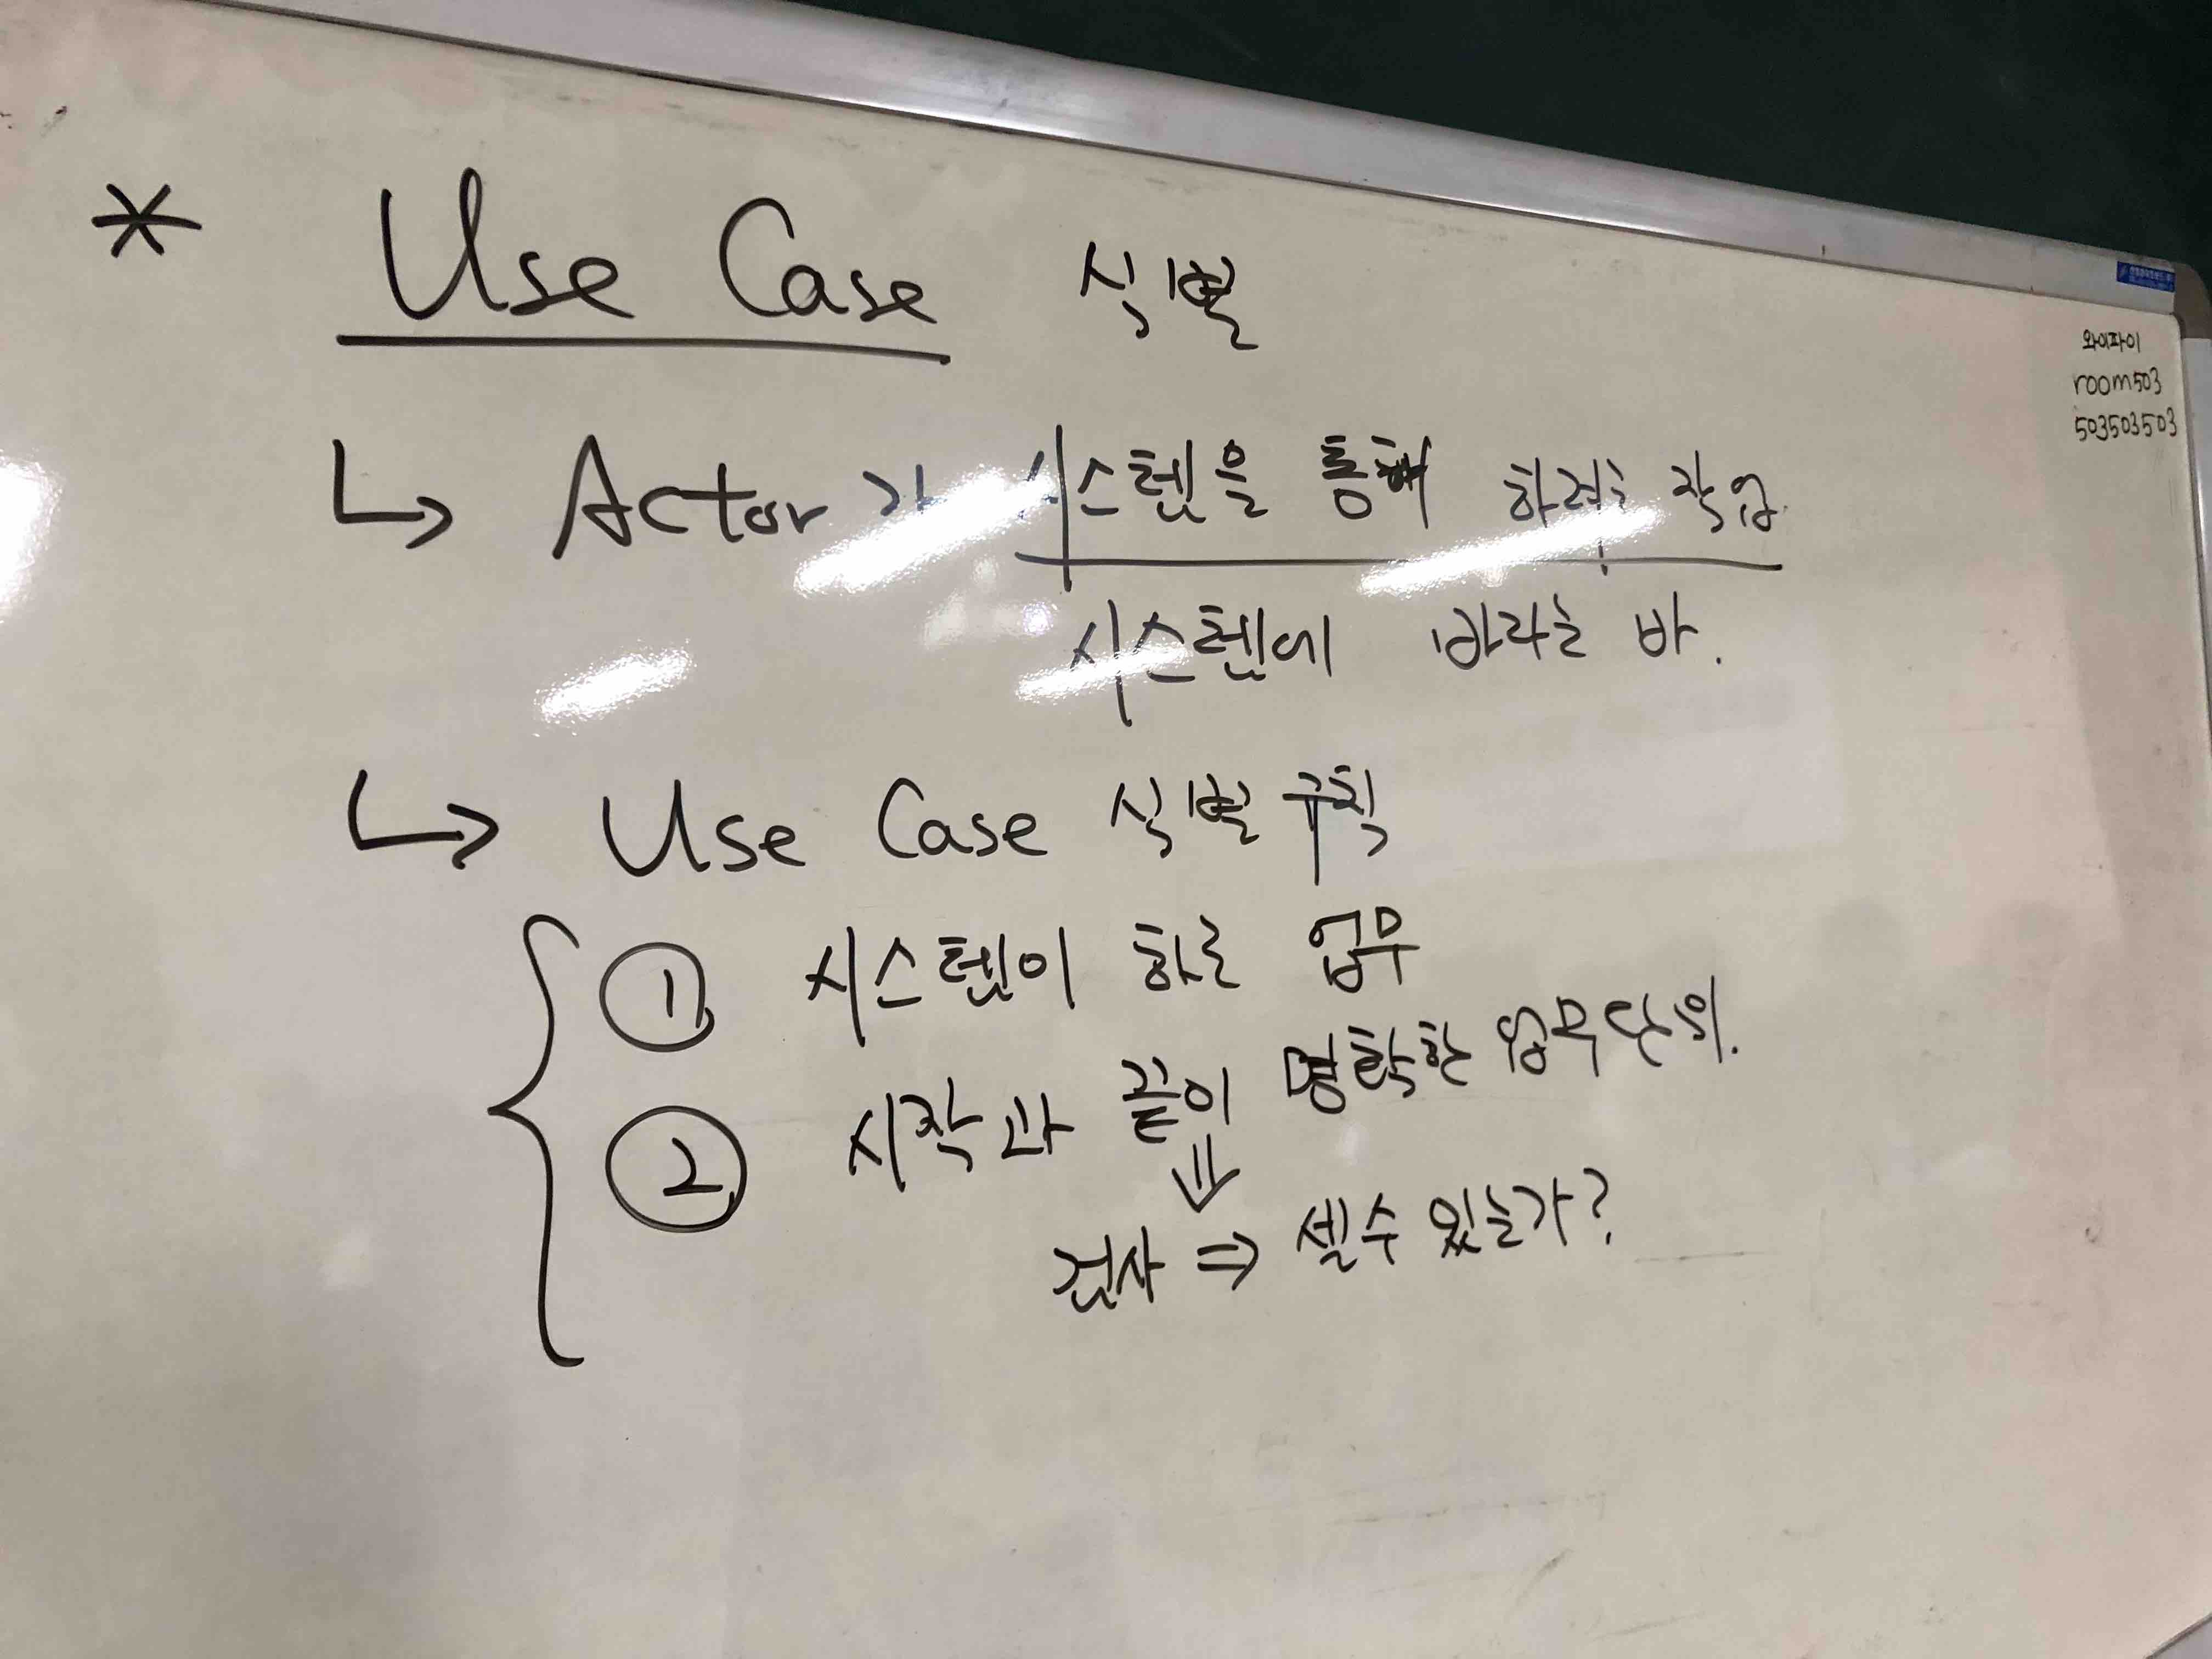 * Use Case 식별
↳ Actor가 시스템을 통해 하려는 작업.
시스템에 바라는 바.
↳ Use Case 식별 규칙
① 시스템이 하는 업무
② 시작과 끝이 명확한 업무단위.
⇓
검사 ⇒ 셀수 있는가?
와이파이
room503
503503503